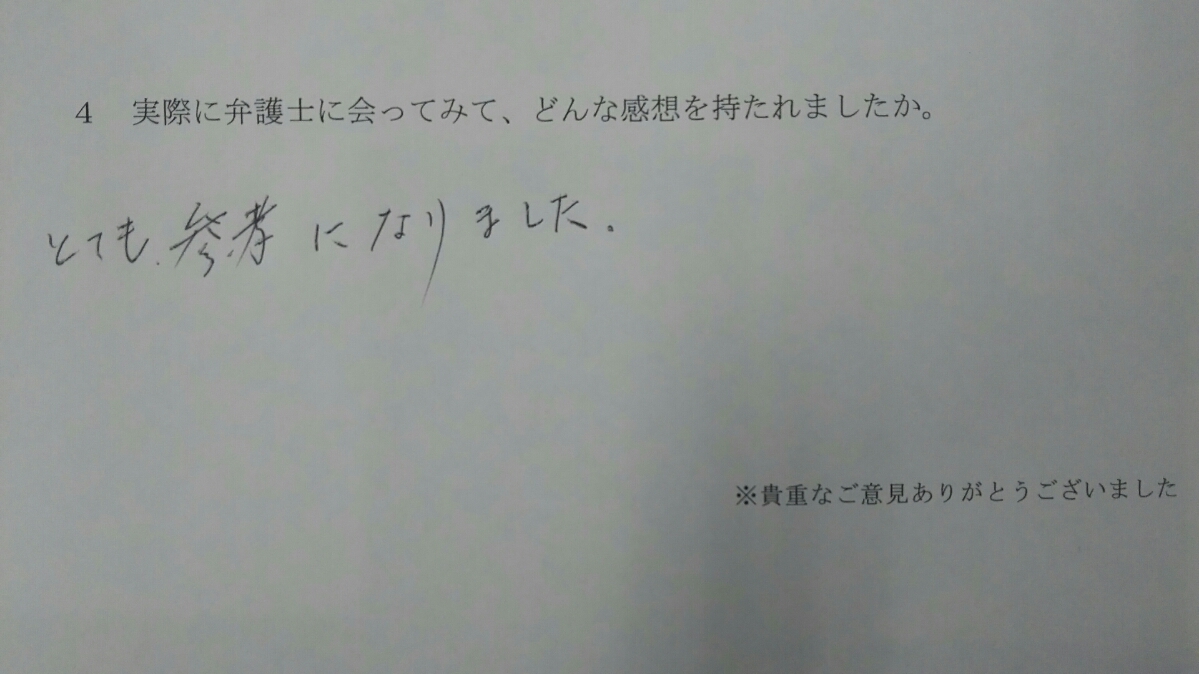 4 実際に弁護士に会ってみて、どんな感想を持たれましたか。
とても参考になりました。
※貴重なご意見ありがとうございました